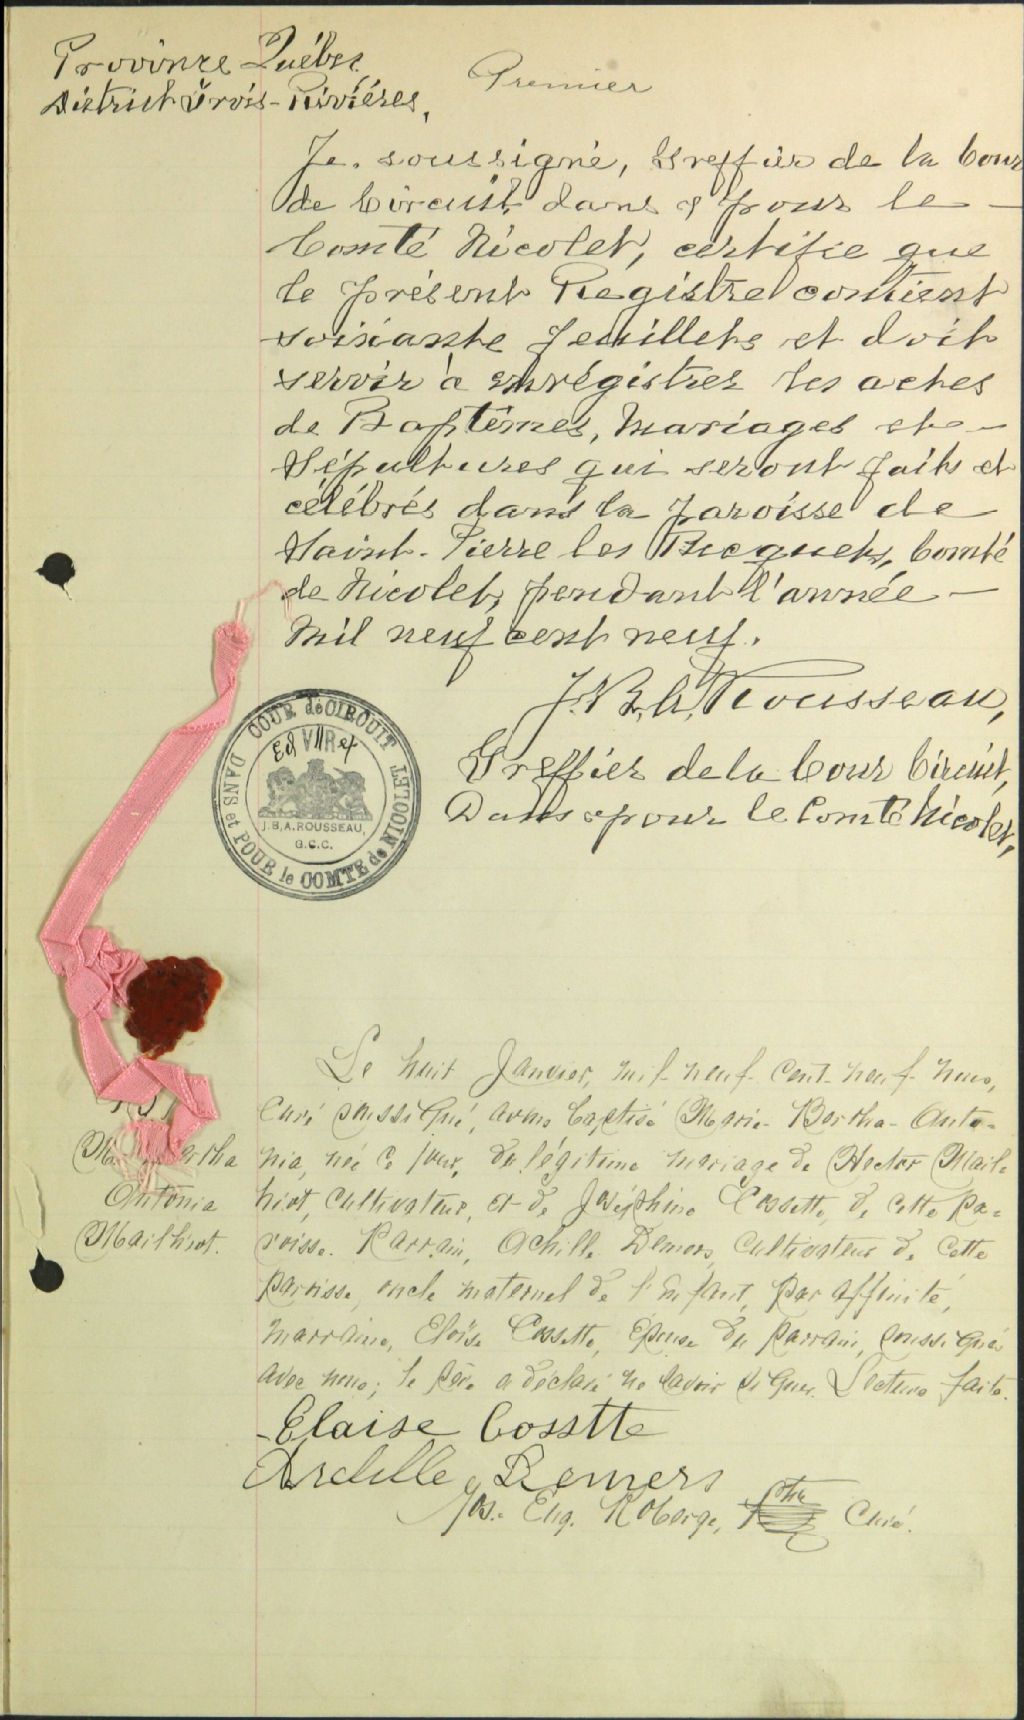 Province Québec
District Trois-Rivières,
Premier
Je, soussigné, Greffier de la Cour
de Circuit dans & pour le —
Comté Nicolet, certifie que
le présent Registre contient
soixante feuillets et doit
servir à enrégistrer les actes
de Baptêmes, Mariages et —
Sépultures qui seront faits et
célébrés dans la paroisse de
Saint-Pierre les Becquets, Comté
de Nicolet, pendant l'année —
Mil neuf cent neuf.
J.B.A. Rousseau,
Greffier de la Cour Circuit,
Dans & pour le Comté Nicolet,
COUR de CIRCUIT
DANS et POUR le COMTE de NICOLET
Ed VII Rex
J.B.A. ROUSSEAU,
G.C.C.
Le huit Janvier, mil-neuf-cent-neuf nous,
Curé soussigné, avons baptisé Marie-Bertha-Anto-
nia, née ce jour, du légitime mariage de Hector Mail-
hiot, cultivateur, et de Joséphine Cossette, de cette pa-
roisse. Parrain, Achille Demers, cultivateur de cette
paroisse, oncle maternel de l'Enfant, par affinité,
marraine, Eloïse Cossette, Épouse du parrain, soussignés
avec nous; le père a déclaré ne savoir signer. Lecture faite.
M. Bertha
Antonia
Mailhiot.
Elaise Cosstte
Archille Demers
Jos. Eug. Roberge, Ptre Curé.